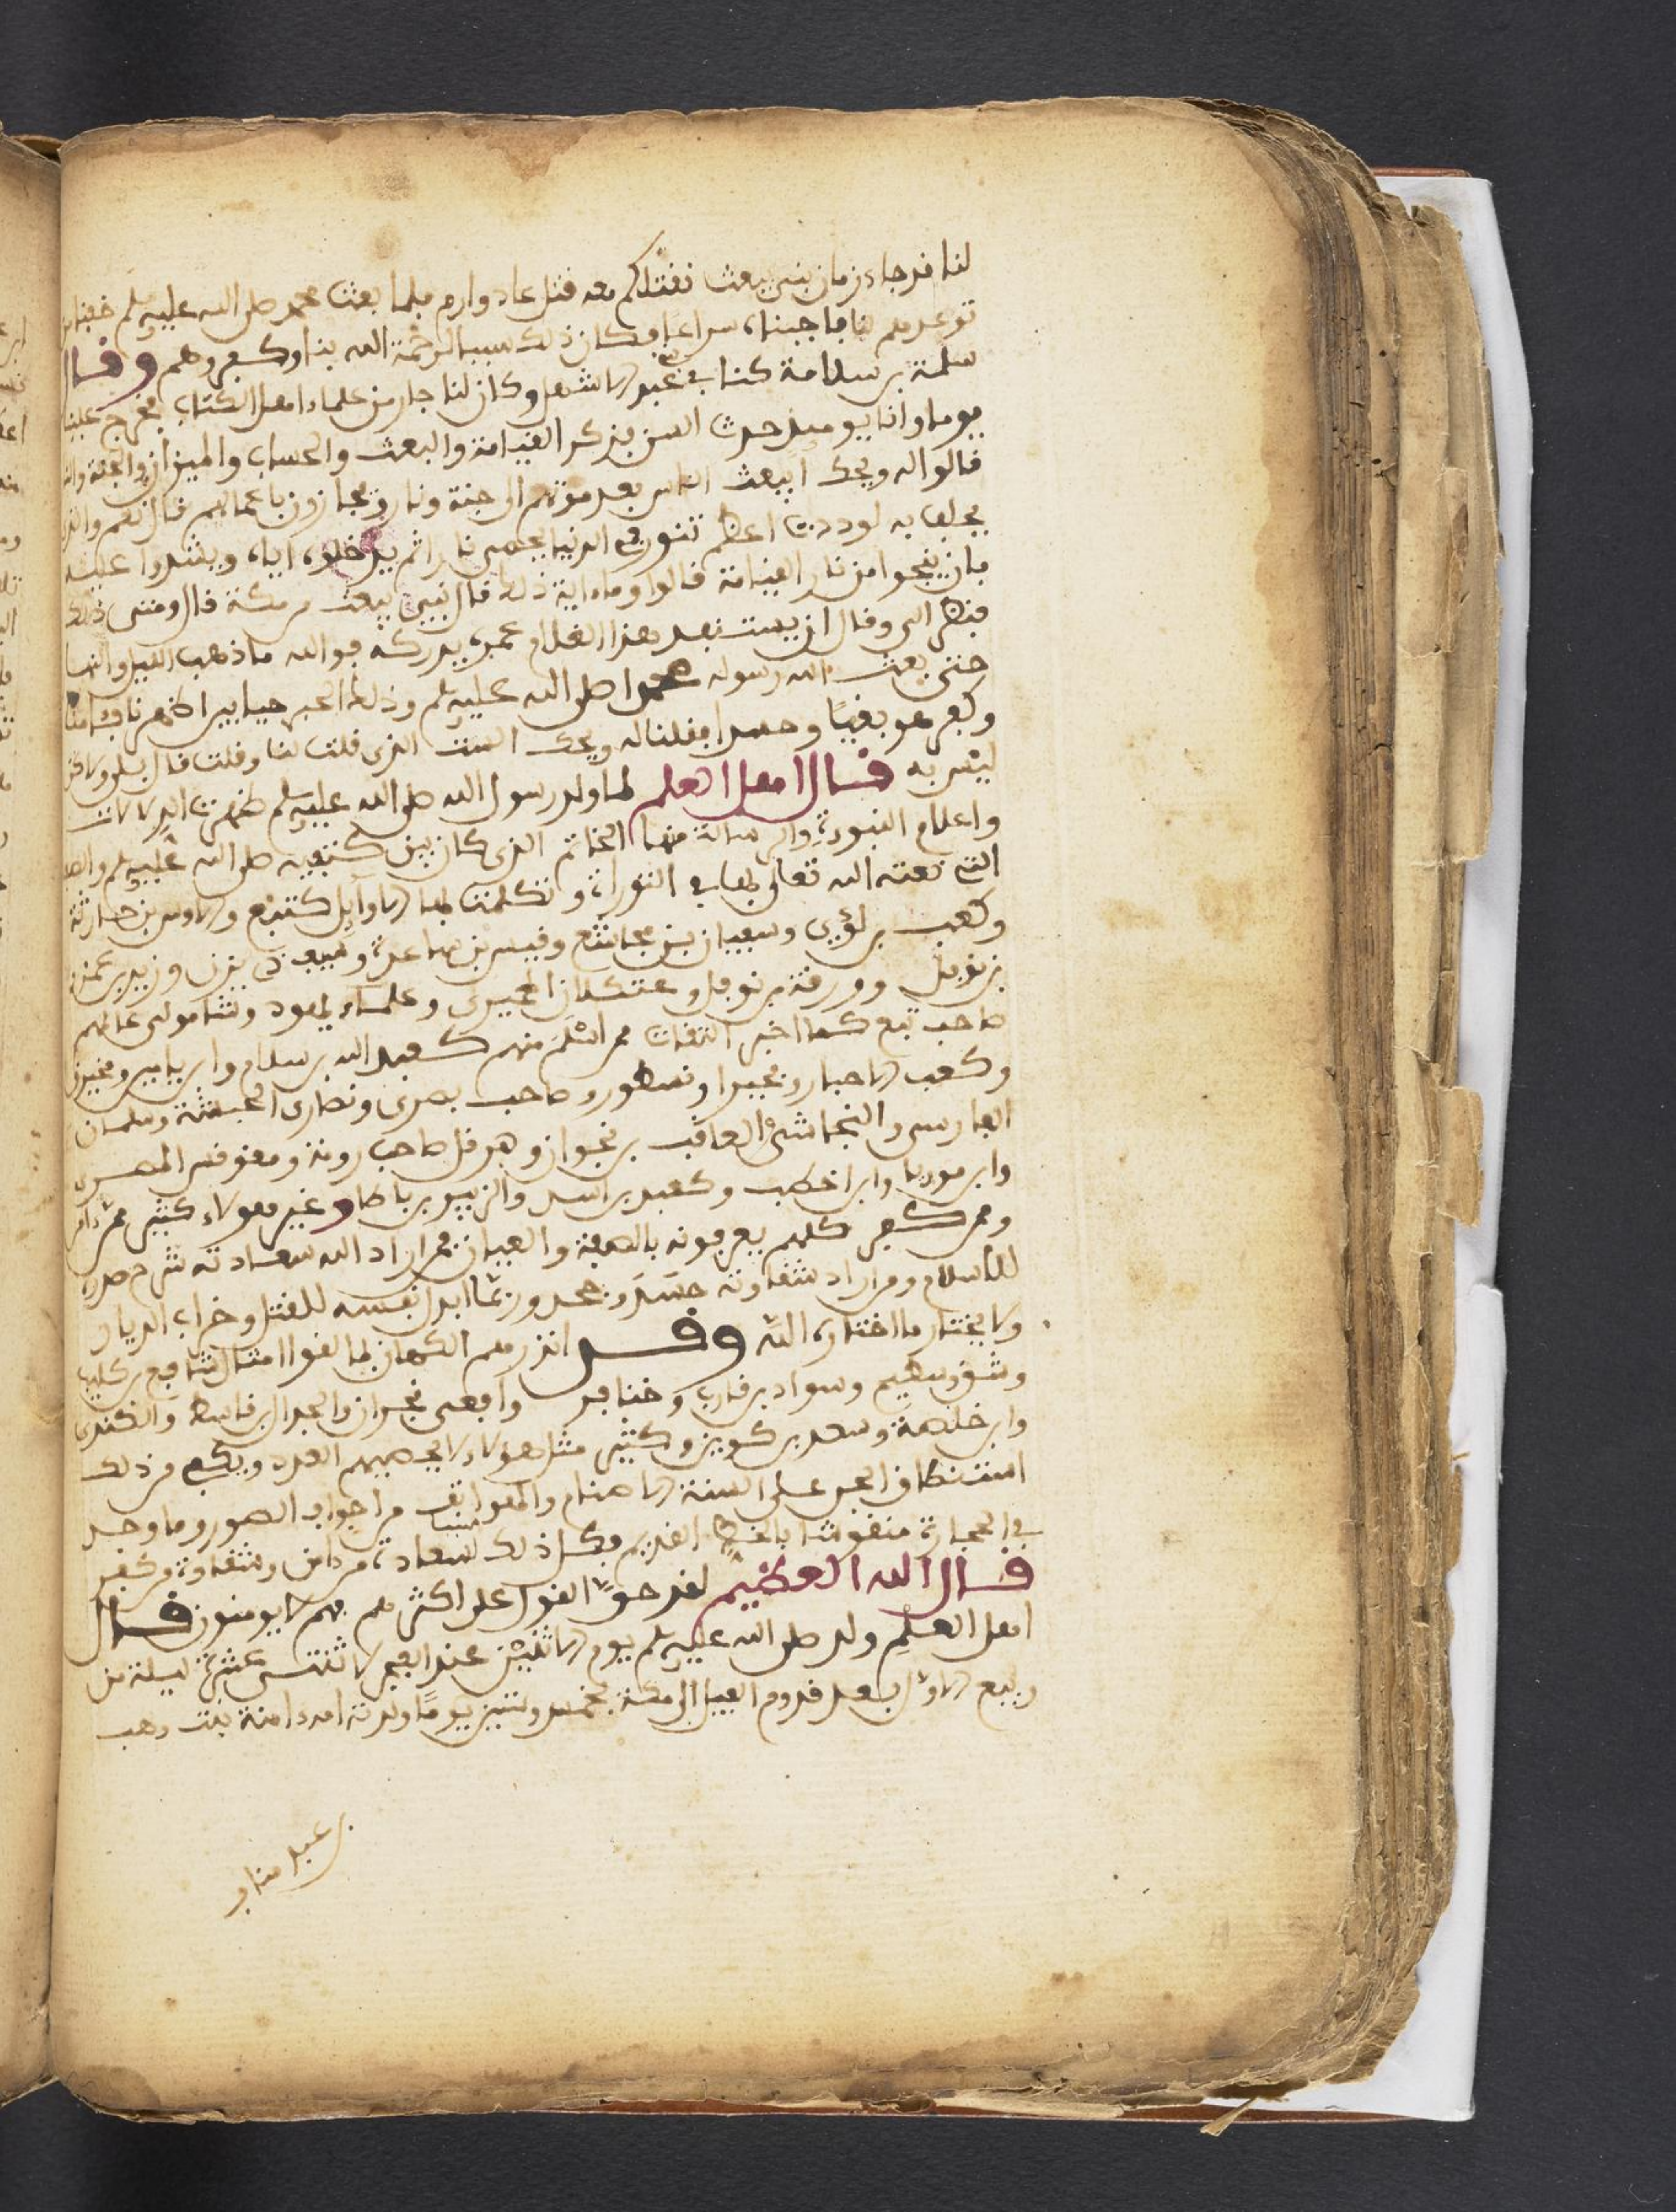 لنا قد جاء زمان نبي يبعث نقتلكم معه قتل عاد وارم فلما بعث محمد صلى الله عليه سلم خفنا من
توعدهم لنا فاجبناه سراعا فكان ذلك سببا لرحمة الله بنا وكفروهم وقال
سلمة بن سلامة كنا في بني عبد الاشهل وكان لنا جار من علماء اهل الكتاب فخرج علينا
يوما وانا يوميذ حدث السن يذكر القيامة والبعث والحساب والميزان والجنة والنار
فقالوا له ويحك ايبعث الناس بعد موتهم الى جنة ونار ويجازون باعمالهم قال نعم والذي
يحلف به لوددت اعظم تنور في الدنيا يحمى نارا ثم يدخلوه اياه ويشدوا عليه
بان ينجوا من نار القيامة قالوا وماءاية ذلك قال نبيء يبعث من مكة قال ومتى ذلك
فنظر الي وقال ان يستنفد هذا الغلام عمره يدركه فوالله ما ذهب الليل والنهار
حتى بعث الله رسوله محمدا صلى الله عليه سلم وذلك الحبر حيا بين اظهرنا فامنا
وكفر هو بغيًا وحسدا فقلنا له ويحك الست الذي قلت لنا وقلت قال بلى ولاكن
ليس به قال اهل العلم لما ولد رسول الله صلى الله عليه سلم ظهرت الدلالات
واعلام النبوءة والرسالة منها الخاتم الذي كان بين كتفيه صلى الله عليه سلم والصفة
التي نعته الله تعالى بها في التوراة وتكلمت بها الاوايل كتبع والاوس بن حارثة
وكعب بن لؤي وسفيان بن مجاشع وقيس بن ساعدة وسيف ذي يزن وزيد بن عمرو
بن نفيل وورقة بن نوفل وعثكلان الحميري وعلماء يهود وشامول عالمهم
صاحب تبع كما اخبر الثقات ممن اسْلَمَ منهم كعبد الله بن سلام وابن يامين ومخيريق
وكعب الاحبار وبحيرا ونسطور وصاحب بصرى ونصارى الحبشة وسلمان
الفارسي والنجاشي والعاقب بن نجران وهرقل صاحب رومة ومقوقس المصري
وابن صوريا وابن اخطب وكعب بن اسد والزبير بن باطا وغير هولاء كثير ممن ءامن
وممن كفر كلهم يعرفونه بالصفة والعيان فمن اراد الله سعادته شرح صدره
للاسلام ومن اراد شقاوته حسد وجحد وربما ابدل نفسه للقتل وخراب الديار
ولا يختار ما اختاره الله وقد انذر بهم الكهان بما القوا امثال شافع بن كليب
وشق وسطيح وسواد بن قارب وخنافر وافعى نجران والجدل ابن قاسط والكندي
وابن خلصة وسعد بن كريز وكثير مثل هؤلاء لا يحصيهم العدد ويكفي من ذلك
استنطاق الحق على السنة الاصنام والهواتف من اجواف الصور وما وجد
في الحجارة منقوشا بالخط القديم فكل ذلك سببا لسعادة من ءامن وشقاوة من كفر
قال الله العظيم لقد حق القول على اكثرهم فهم لا يومنون قال
اهل العلم ولد صلى الله عليه سلم يوم الاثنين عند الفجر لاثنتي عشرة ليلة من
ربيع الاول بعد قدوم الفيل الى مكة بخمسين يومًا ولدته امه ءامنة بنت وهب
بن عبد مناف